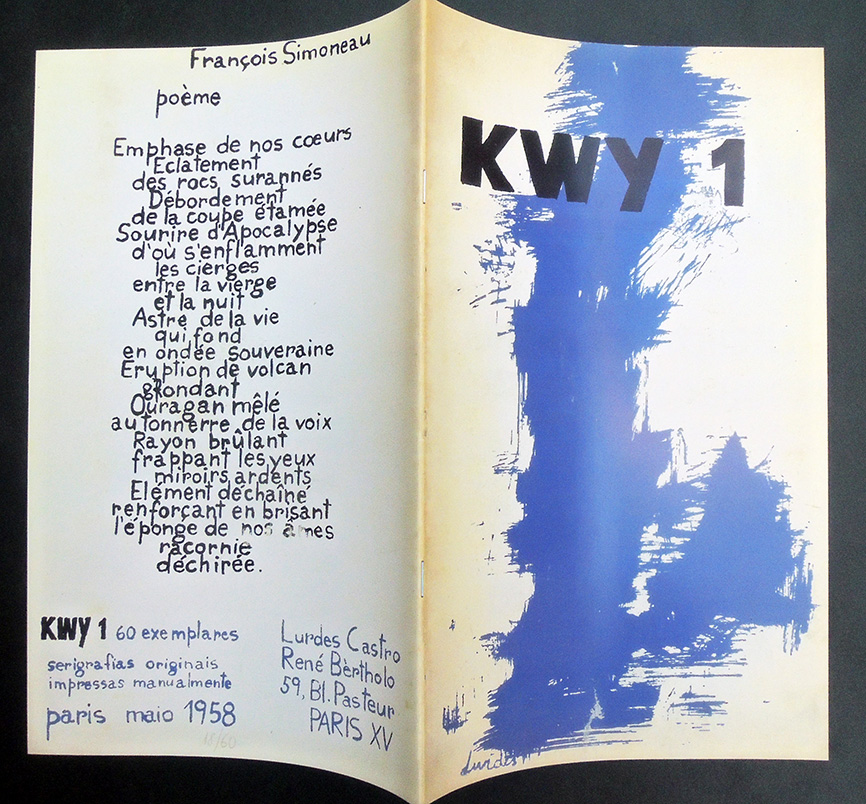 François Simoneau
poème
Emphase de nos cœurs
Eclatement
des rocs surannés
Débordement
de la coupe étamée
Sourire d'Apocalypse
d'où s'enflamment
les cierges
entre la vierge
et la nuit
Astre de la vie
qui fond
en ondée souveraine
Eruption de volcan
grondant
Ouragan mêlé
au tonnerre de la voix
Rayon brûlant
frappant les yeux
miroirs ardents
Elément déchaîné
renforçant en brisant
l'éponge de nos âmes
racornie
déchirée.
KWY 1 60 exemplares
serigrafias originais
impressas manualmente
paris maio 1958
Lurdes Castro
René Bèrtholo
59, Bl. Pasteur
PARIS XV
KWY 1
Lurdes